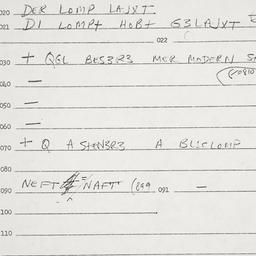 020 DER LOMP LAJXT.
021 DI LOMP+ HOB+ G3LAJXT
022
030 + QGL BES3R3 MER MODERN
040 —
050 —
060 —
070 + Q A SHEN3R3 A BLICLOMP
080
090 NEFT NAFT (899 091 —
100
110